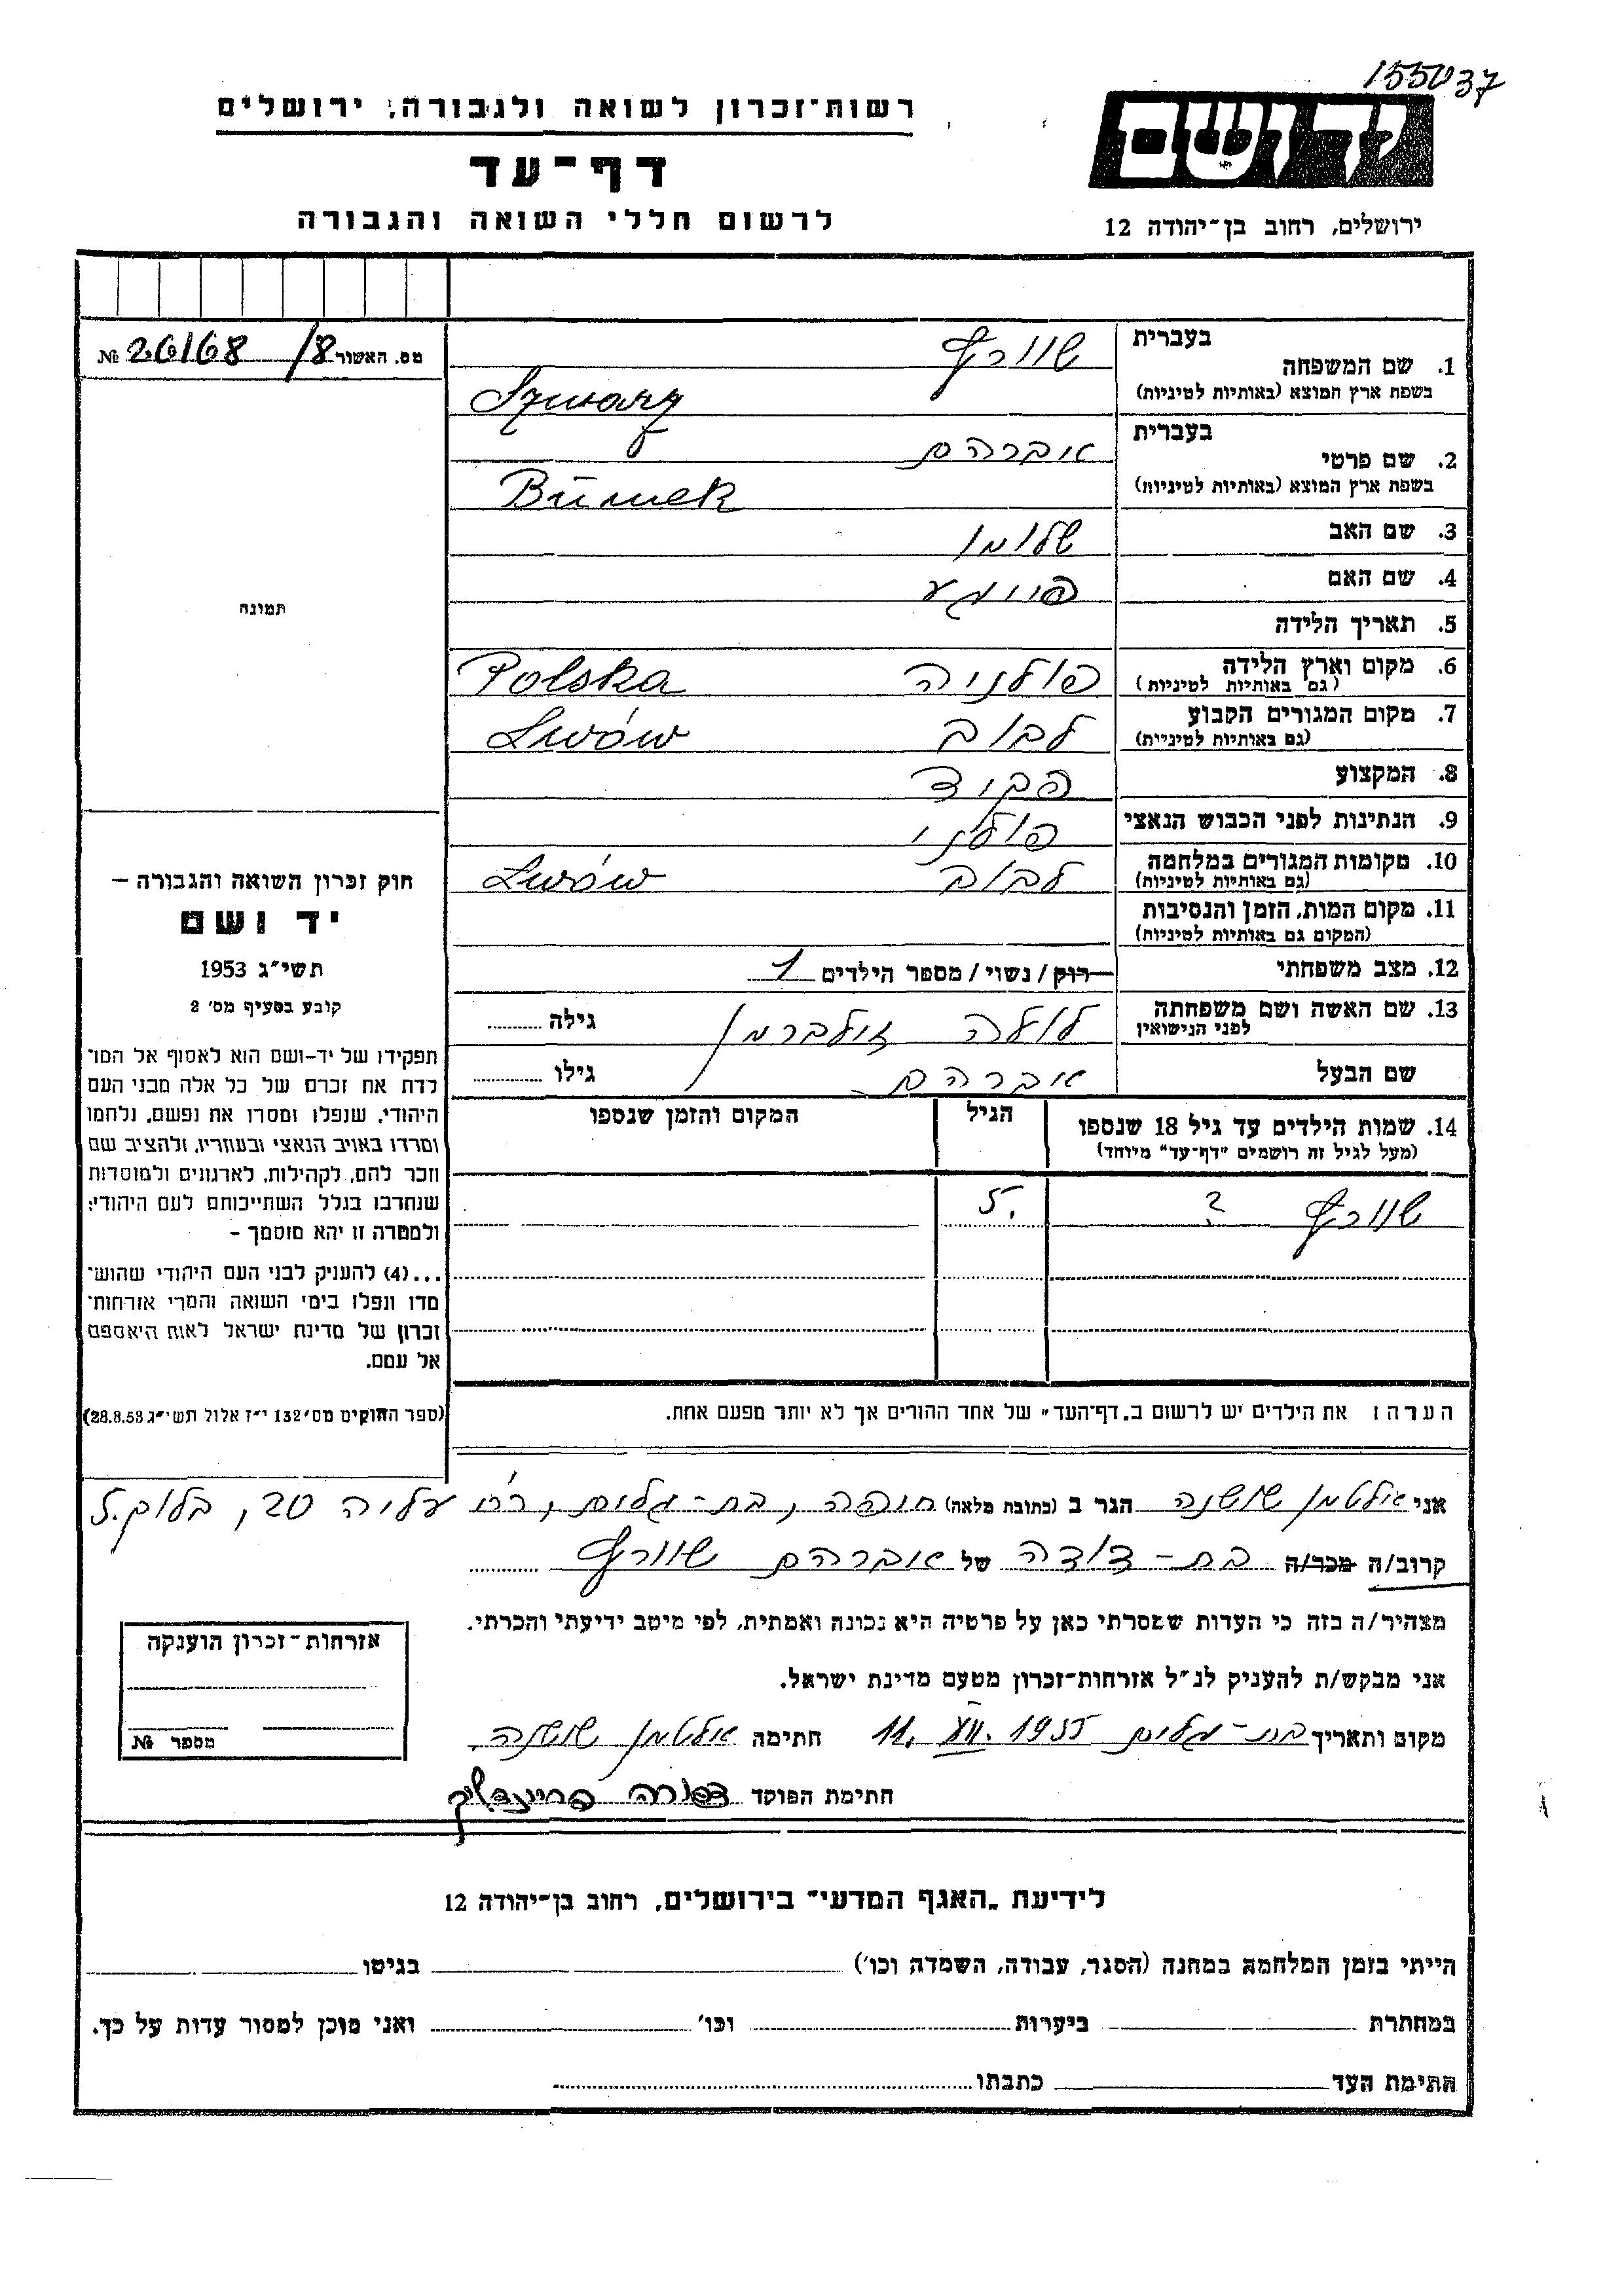 155037
רשות־זכרון לשואה ולגבורה, ירושלים
יד ושם
דף־עד
לרשום חללי השואה והגבורה
ירושלים, רחוב בן־יהודה 12
מס. האשור 18/ 26168 №
תמונה
חוק זכרון השואה והגבורה –
יד ושם
תשי״ג 1953
קובע בסעיף מס׳ 2
תפקידו של יד-ושם הוא לאסוף אל המו־
לדת את זכרם של כל אלה מבני העם
היהודי, שנפלו ומסרו את נפשם, נלחמו
ומרדו באויב הנאצי ובעוזריו, ולהציב שם
וזכר להם, לקהילות, לארגונים ולמוסדות
שנחרבו בגלל השתייכותם לעם היהודי;
ולמטרה זו יהא מוסמך –
...(4) להעניק לבני העם היהודי שהוש־
מדו ונפלו בימי השואה והמרי אזרחות־
זכרון של מדינת ישראל לאות היאספם
אל עמם.
(ספר החוקים מס׳ 132 י״ז אלול תשי״ג 28.8.53)
בעברית שוורץ
1. שם המשפחה
בשפת ארץ המוצא (באותיות לטיניות) Szwarz
בעברית אברהם
2. שם פרטי
בשפת ארץ המוצא (באותיות לטיניות) Bumek
3. שם האב שלומו
4. שם האם
5. תאריך הלידה
6. מקום וארץ הלידה פולניה Polska
(גם באותיות לטיניות)
7. מקום המגורים הקבוע לבוב Lwów
(גם באותיות לטיניית)
8. המקצוע פקיד
9. הנתינות לפני הכבוש הנאצי פולני
10. מקומות המגורים במלחמה לבוב Lwów
(גם באותיות לטיניות)
11. מקום המות, הזמן והנסיבות
(המקום גם באותיות לטיניות)
12. מצב משפחתי רוק / נשוי / מספר הילדים 1
13. שם האשה ושם משפחתה לפני הנישואין לולה זילברמן גילה
שם הבעל אברהם גילו
14. שמות הילדים עד גיל 18 שנספו הגיל המקום והזמן שנספו
(מעל לגיל זה רושמים "דף-עד" מיוחד)
שוורץ ? 5.
הערה: את הילדים יש לרשום ב„דף־העד״ של אחד ההורים אך לא יותר מפעם אחת.
אני אלטמן שושנה הגר ב (כתובת מלאה) חיפה, בת-גלים, רח׳ עליה 20, בלוק 5.
קרוב/ה מכר/ה בת-דודה של אברהם שוורץ
מצהיר/ה בזה כי העדות שמסרתי כאן על פרטיה היא נכונה ואמתית, לפי מיטב ידיעתי והכרתי.
אני מבקש/ת להעניק לנ״ל אזרחות־זכרון מטעם מדינת ישראל.
מקום ותאריך בת-גלים 11. VII. 1955 חתימה אלטמן שושנה
חתימת הפוקד
אזרחות־זכרון הוענקה
מספר №
לידיעת „האגף המדעי״ בירושלים, רחוב בן־יהודה 12
הייתי בזמן המלחמה במחנה (הסגר, עבודה, השמדה וכו׳) בגיטו
במחתרת ביערות וכו׳ ואני מוכן למסור עדות על כך.
חתימת העד כתבתו